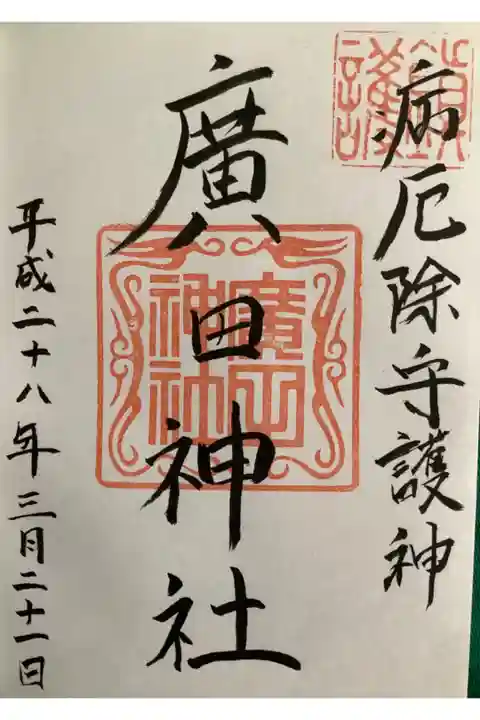 病厄除守護神
廣田神社
廣田
神社
平成二十八年三月二十一日